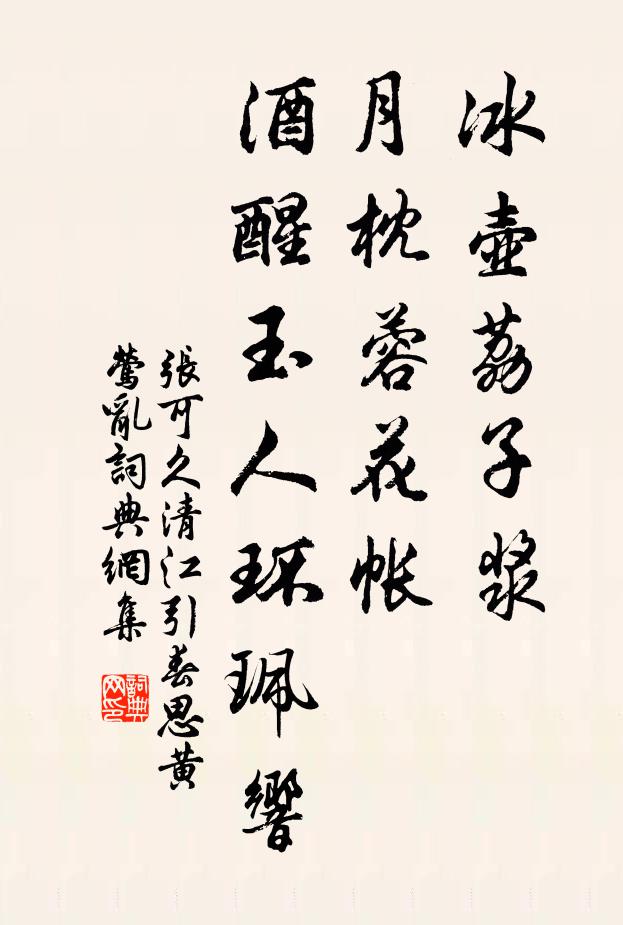 冰壺荔子漿
月枕蓉花帳
酒醒玉人环珮響
張可久清江引春思黄
鶯亂詞典網集
詞典
网印